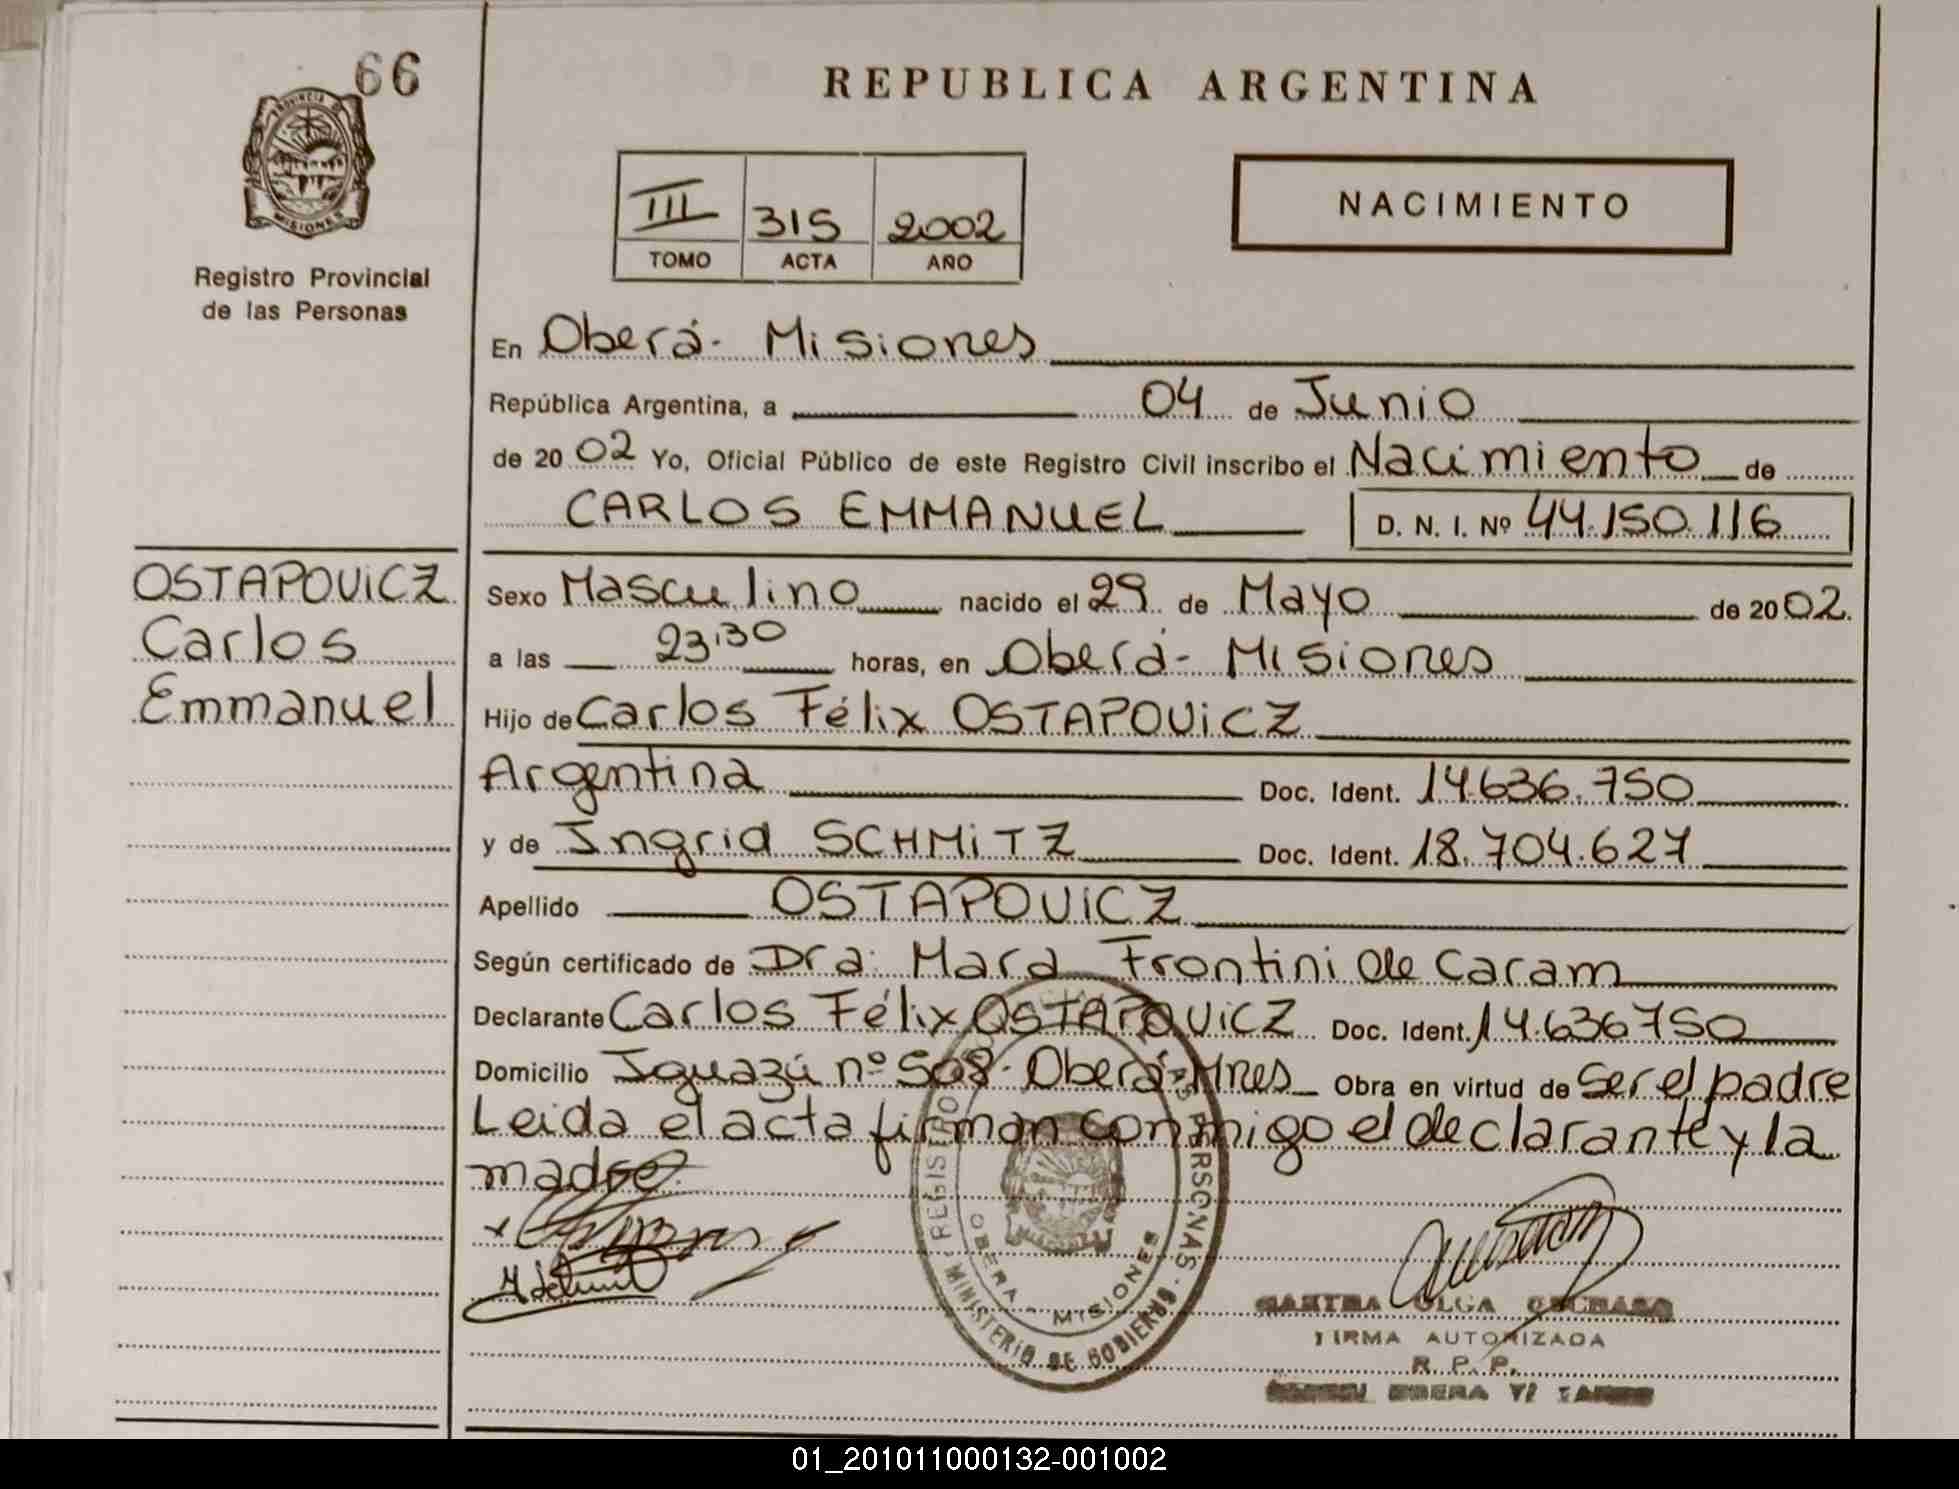 66
PROVINCIA DE
MISIONES
Registro Provincial
de las Personas
REPUBLICA ARGENTINA
III 315 2002
TOMO ACTA AÑO
NACIMIENTO
En Oberá - Misiones
República Argentina, a 04 de Junio
de 20 02 Yo, Oficial Público de este Registro Civil inscribo el Nacimiento de
CARLOS EMMANUEL D. N. I. Nº 44.150.116
OSTAPOViCZ
Carlos
Emmanuel
Sexo Masculino nacido el 29 de Mayo de 20 02.
a las 23:30 horas, en Oberá - Misiones
Hijo de Carlos Félix OSTAPOViCZ
Argentina Doc. Ident. 14.636.750
y de Ingrid SCHMiTZ Doc. Ident. 18.704.627
Apellido OSTAPOViCZ
Según certificado de Dra. Mara Frontini de Caram
Declarante Carlos Félix OSTAPOViCZ Doc. Ident. 14.636750
Domicilio Iguazú nº 508 - Oberá - Mnes Obra en virtud de Ser el padre
Leida el acta firman conmigo el declarante y la
madre.
REGISTRO PERSONAS - MINISTERIO DE GOBIERNO
OBERA - MISIONES
OLGA
FIRMA AUTORIZADA
R. P. P.
OBERA
01_201011000132-001002